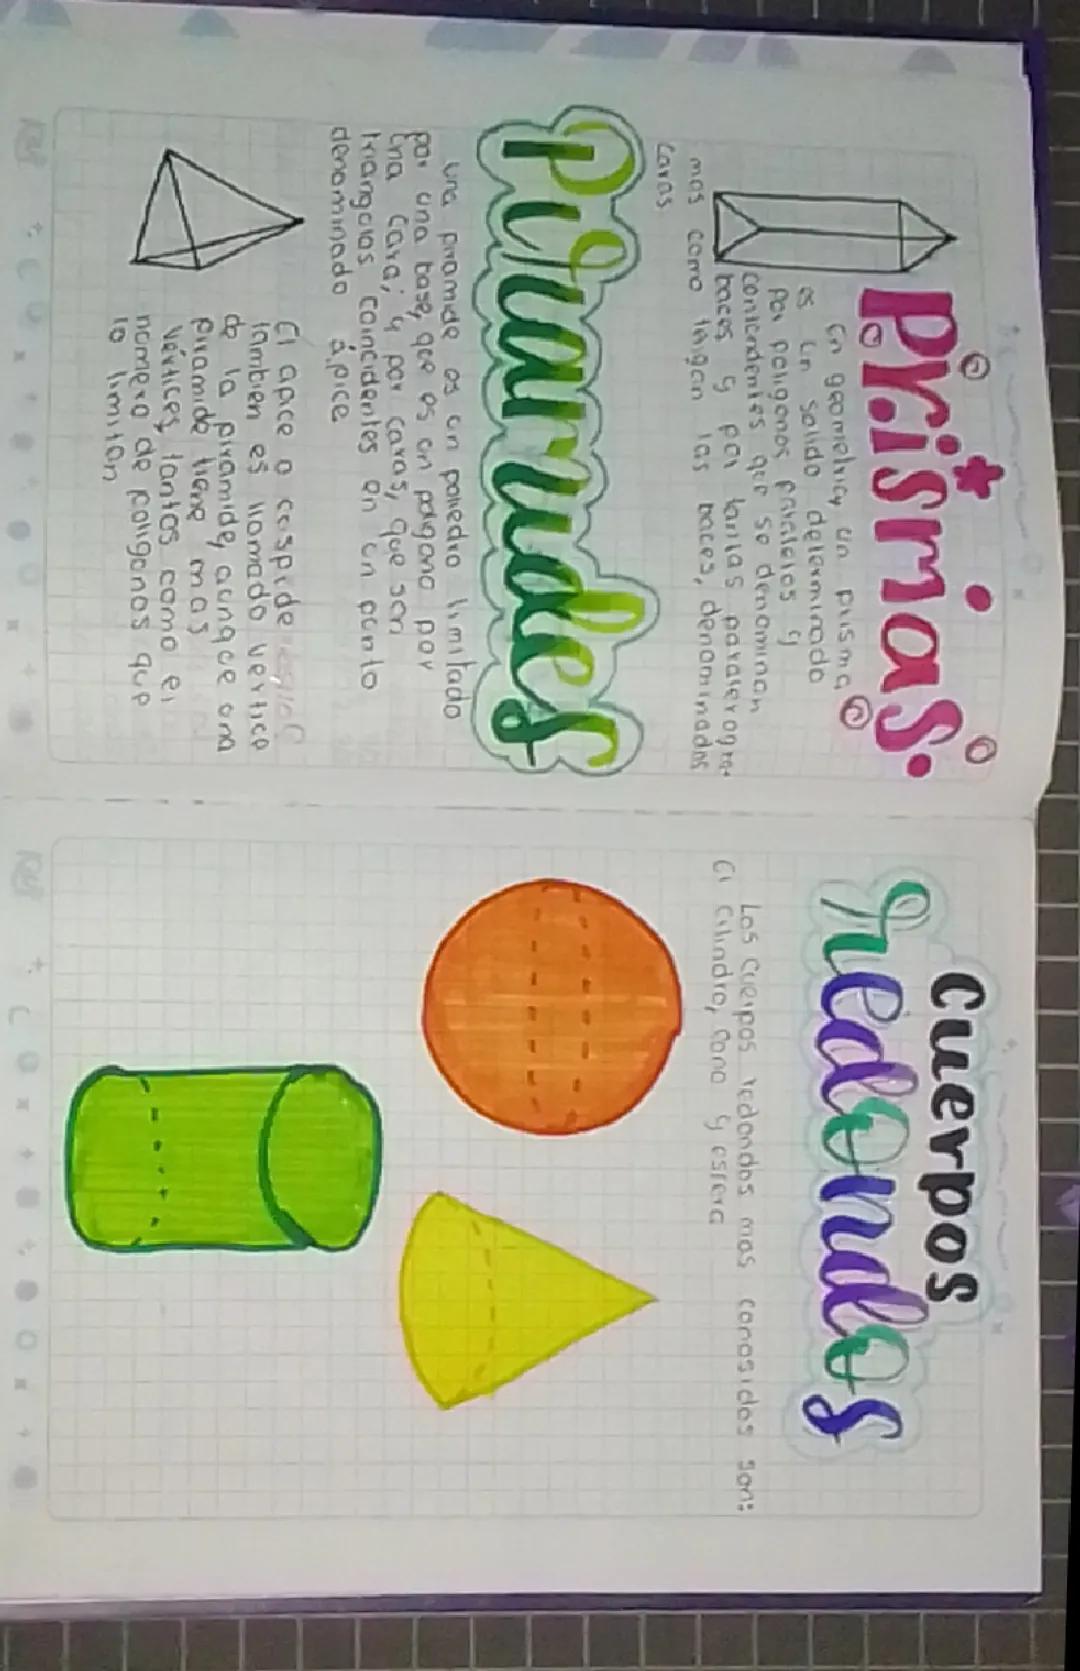 Prismas.
En geometria, un prisma
es un solido determinado
por poligonos paralelos y
contendentes que se denominan
baces y por tantas paralerogra-
mos como tengan las baces, denominadas
caras.
Piramides
una piramide es un poliedro limitado
por una base, que es un poligono por
una cara; y por caras, que son
triangolos coincidentes en un punto
denominado ápice
El apce o cuspide
tambien es llamado vertice
de la piramide, aunque una
piramide tiene mas
vértices tantos como el
numero de poligonos que
lo limitan
Cuerpos
redondos
Los cuerpos redondos mas conosidos son:
El cilindro, cono y esfera